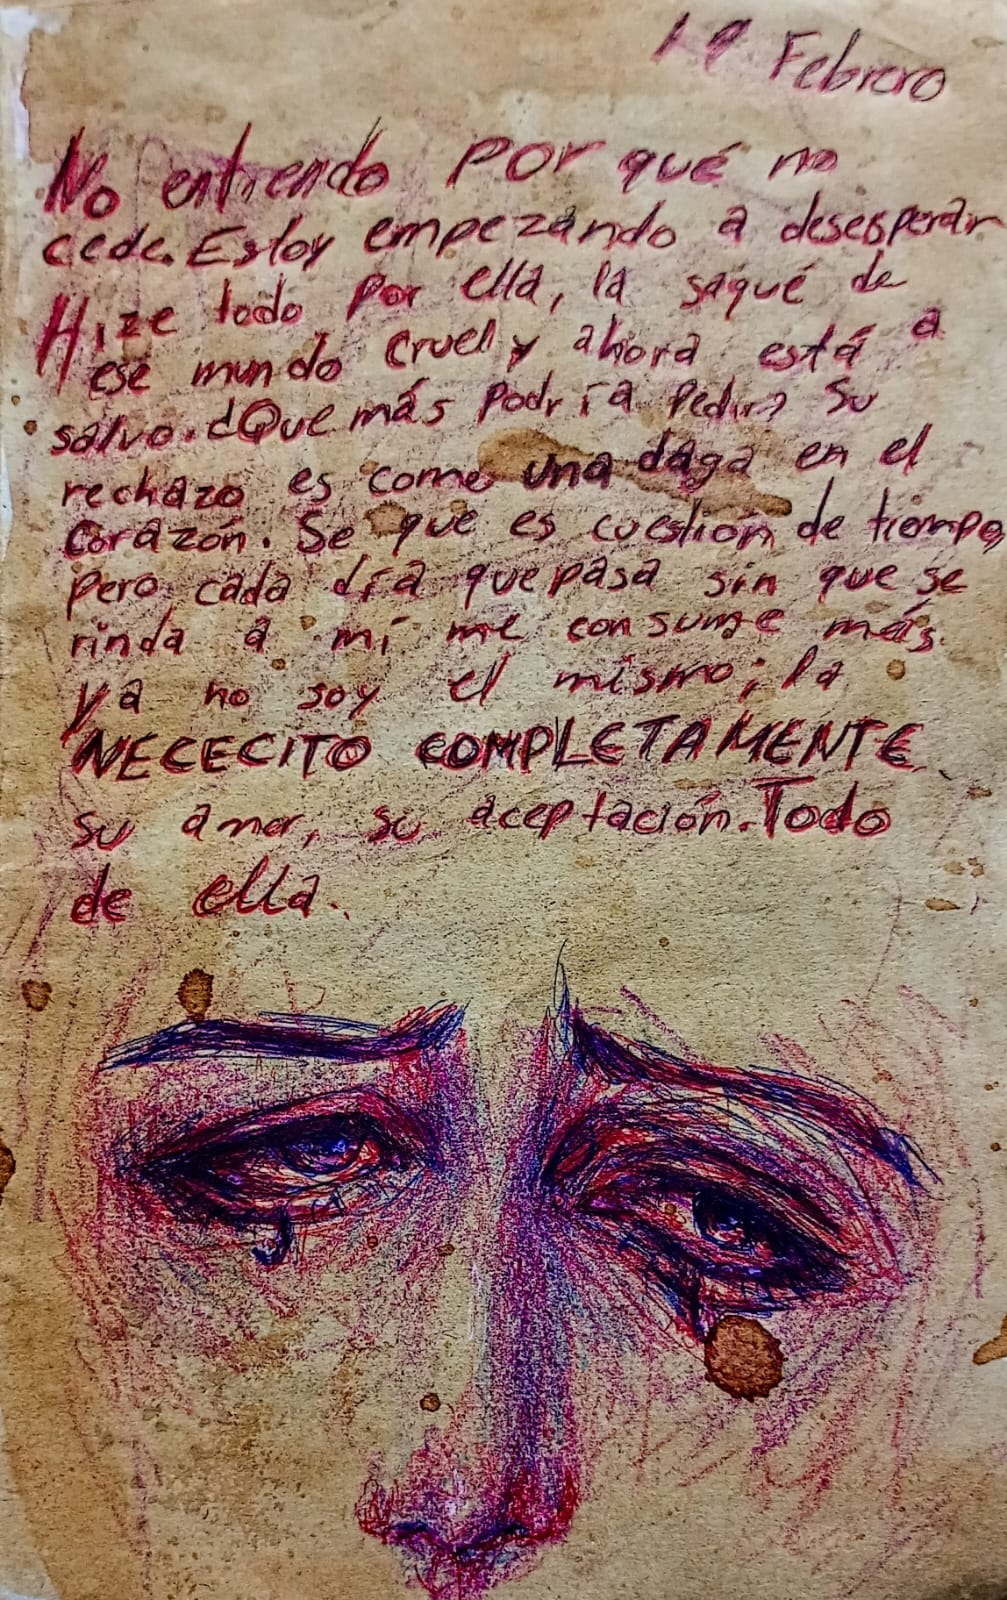 19 Febrero
No entiendo por qué no
cede. Estoy empezando a desesperar
Hize todo por ella, la saqué de
ese mundo cruel y ahora está a
salvo. ¿Que más podría pedir? Su
rechazo es como una daga en el
corazón. Se que es cuestion de tiempo,
pero cada día que pasa sin que se
rinda a mi me consume más.
ya no soy el mismo; la
NECECITO COMPLETAMENTE
su amor, su aceptación. Todo
de ella.